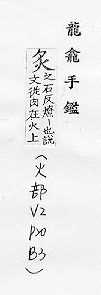 龍龕手鑑
炙
之石反燎〡也說
文從肉在火上
(火部
V2
P20
B3)